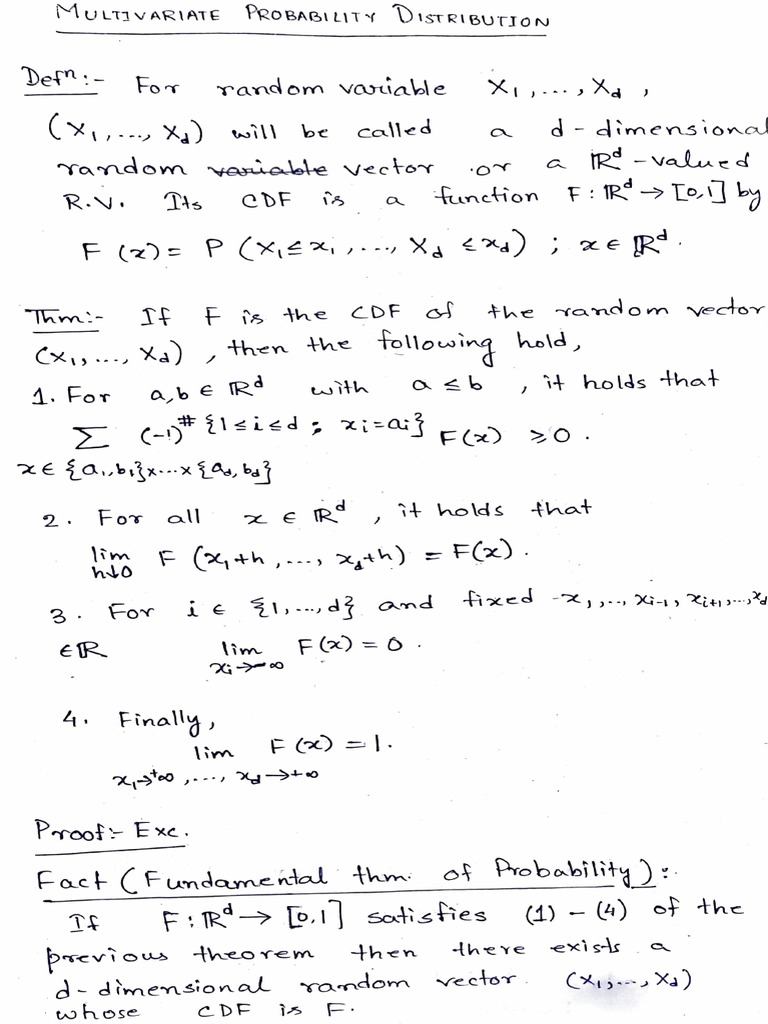 MULTIVARIATE PROBABILITY DISTRIBUTION
Defn:- For random variable X₁,...,X_d ,
(X₁,..., X_d) will be called a d-dimensional
random ~~variable~~ vector or a ℝᵈ-valued
R.V. Its CDF is a function F: ℝᵈ → [0,1] by
F(x) = P(X₁≤x₁,..., X_d ≤x_d) ; x ∈ ℝᵈ.
Thm:- If F is the CDF of the random vector
(X₁,..., X_d) , then the following hold,
1. For a,b ∈ ℝᵈ with a ≤ b , it holds that
∑ (-1)^#{1≤i≤d ; xᵢ=aᵢ} F(x) ≥0 .
x ∈ {a₁,b₁}×...×{a_d, b_d}
2. For all x ∈ ℝᵈ , it holds that
lim F(x₁+h,..., x_d+h) = F(x) .
h↓0
3. For i ∈ {1,...,d} and fixed x₁,..., xᵢ₋₁, xᵢ₊₁,...,x_d
∈ℝ lim F(x) = 0 .
xᵢ→-∞
4. Finally,
lim F(x) = 1.
x₁→+∞ ,..., x_d→+∞
Proof:- Exc.
Fact (Fundamental thm. of Probability):-
If F: ℝᵈ → [0,1] satisfies (1) - (4) of the
previous theorem then there exists a
d-dimensional random vector (X₁,..., X_d)
whose CDF is F.